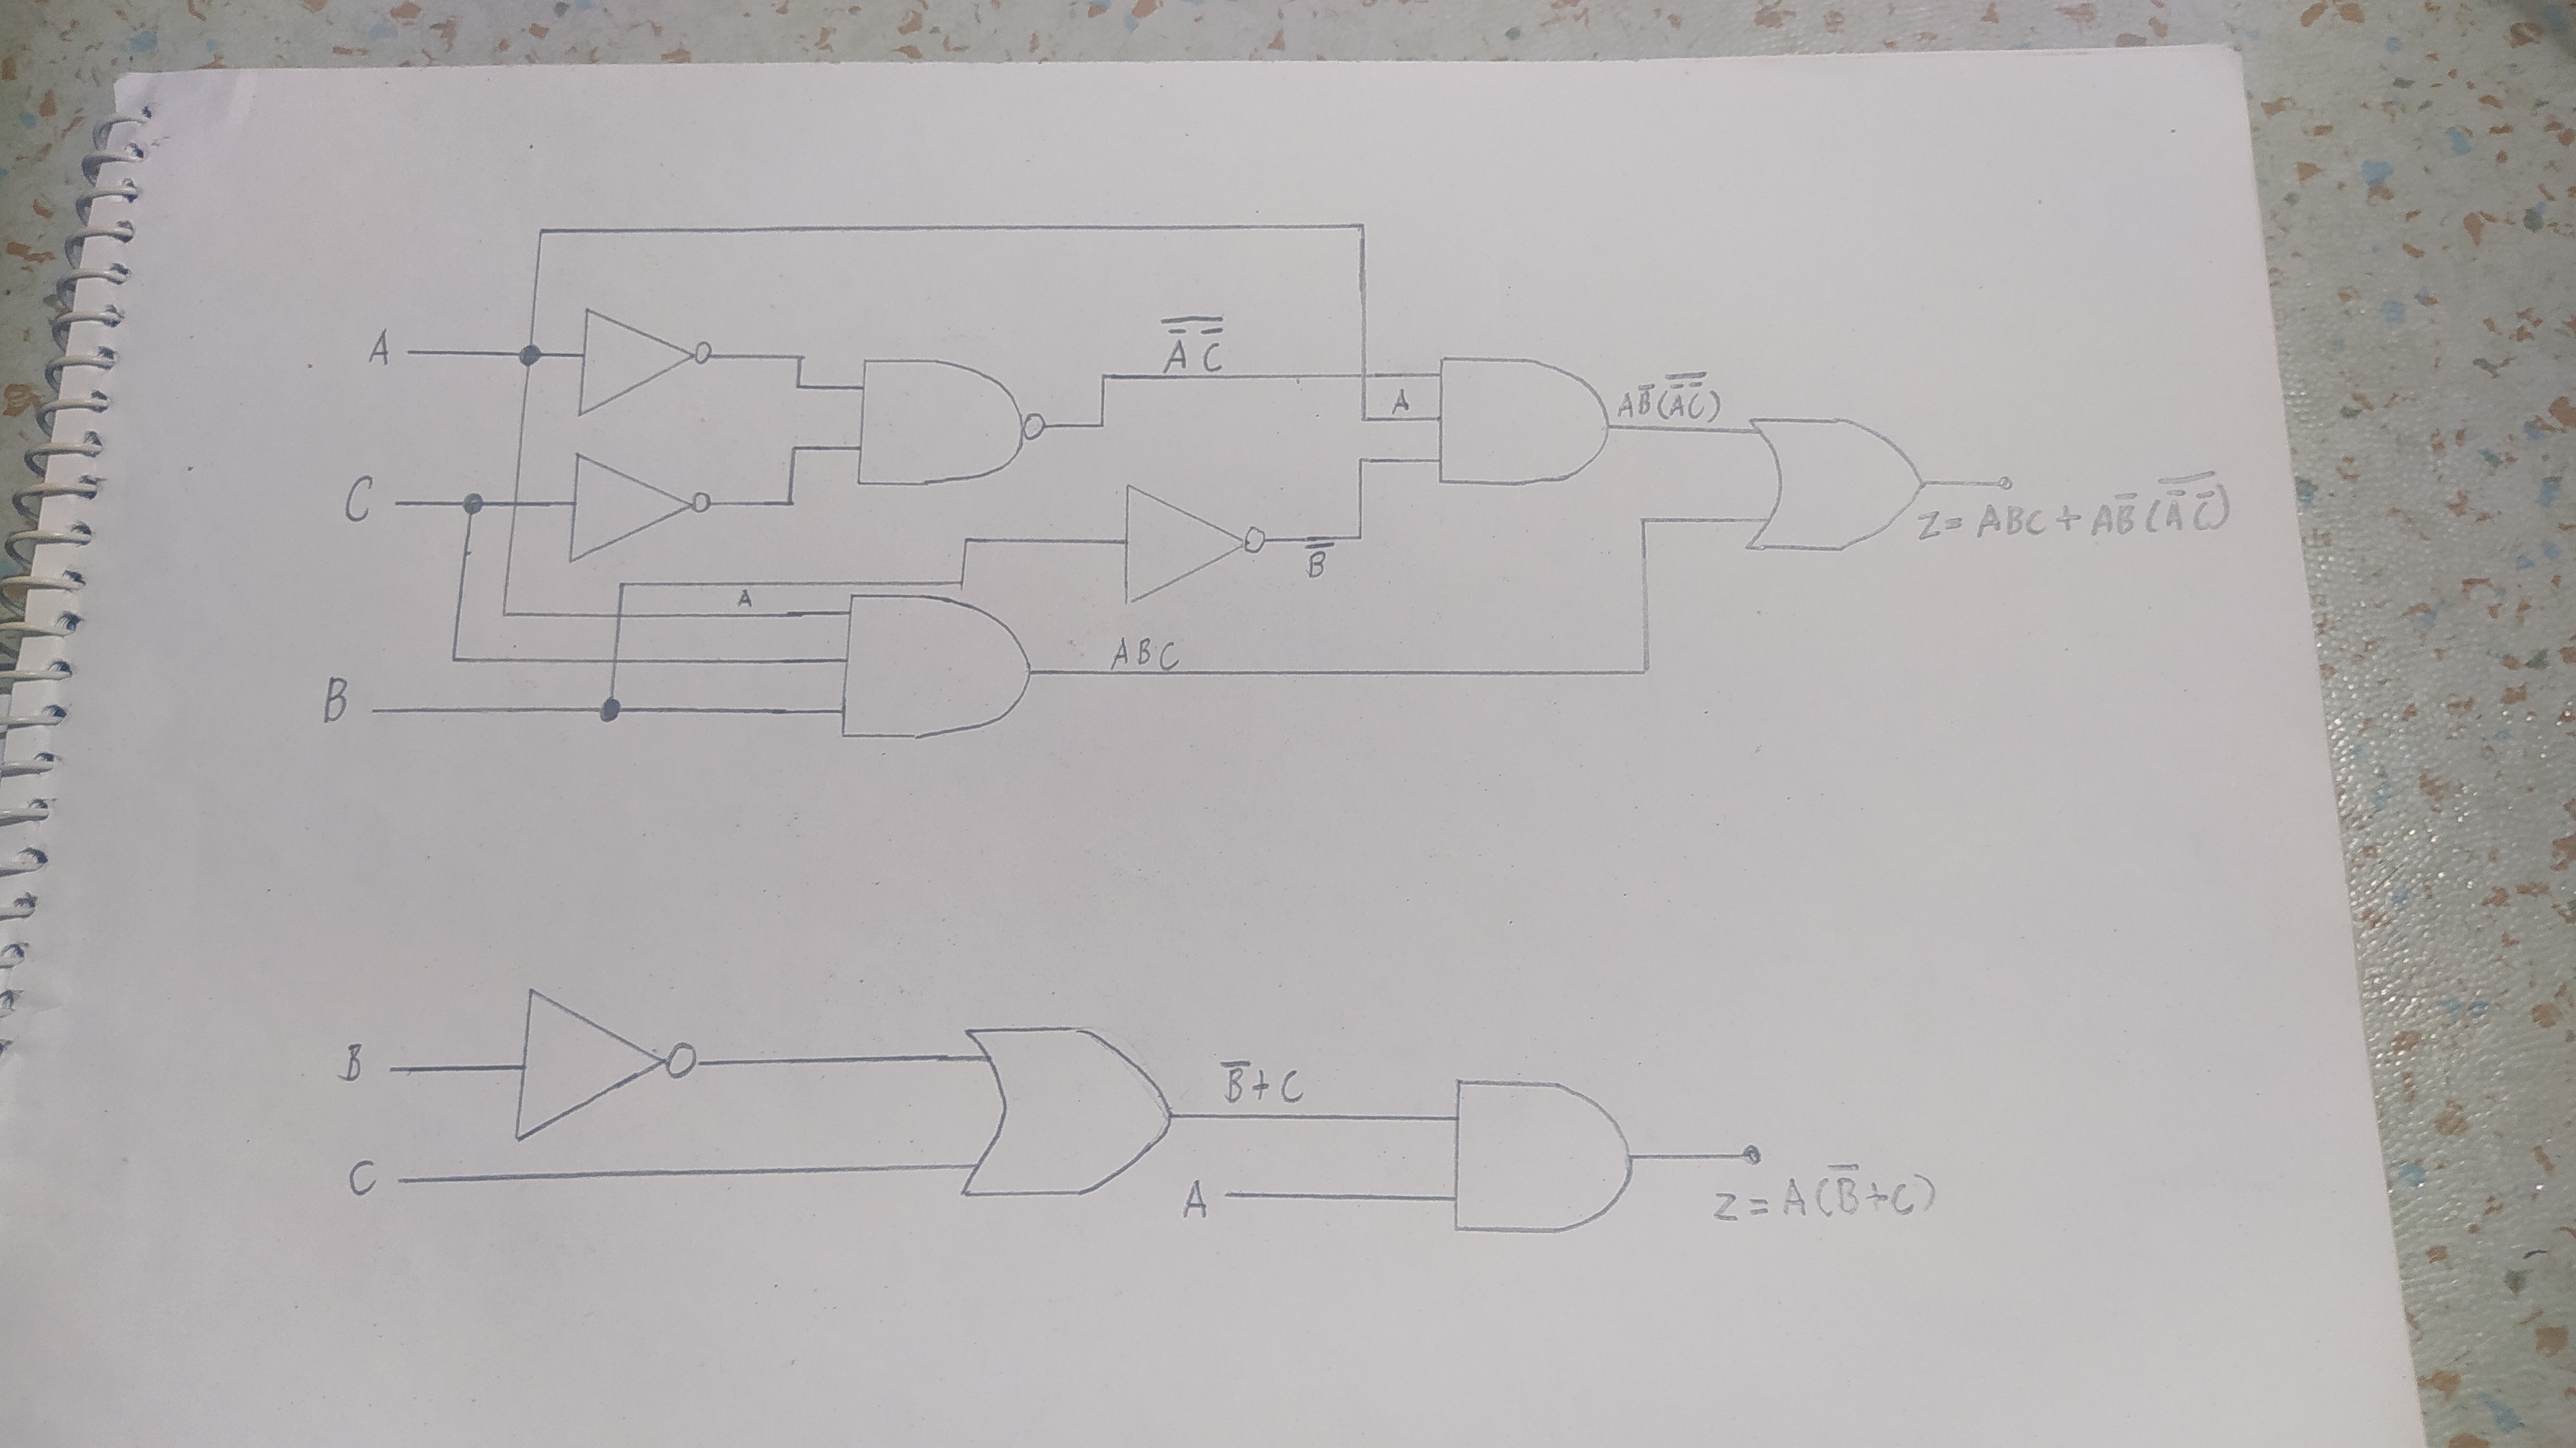 A
C
B
A
A̿̅ C̿̅
ABC
B̅
A
AB̅(A̿̅C̿̅)
Z = ABC + AB̅(A̿̅ C̿̅)
B
C
B̅+C
A
Z = A(B̅+C)